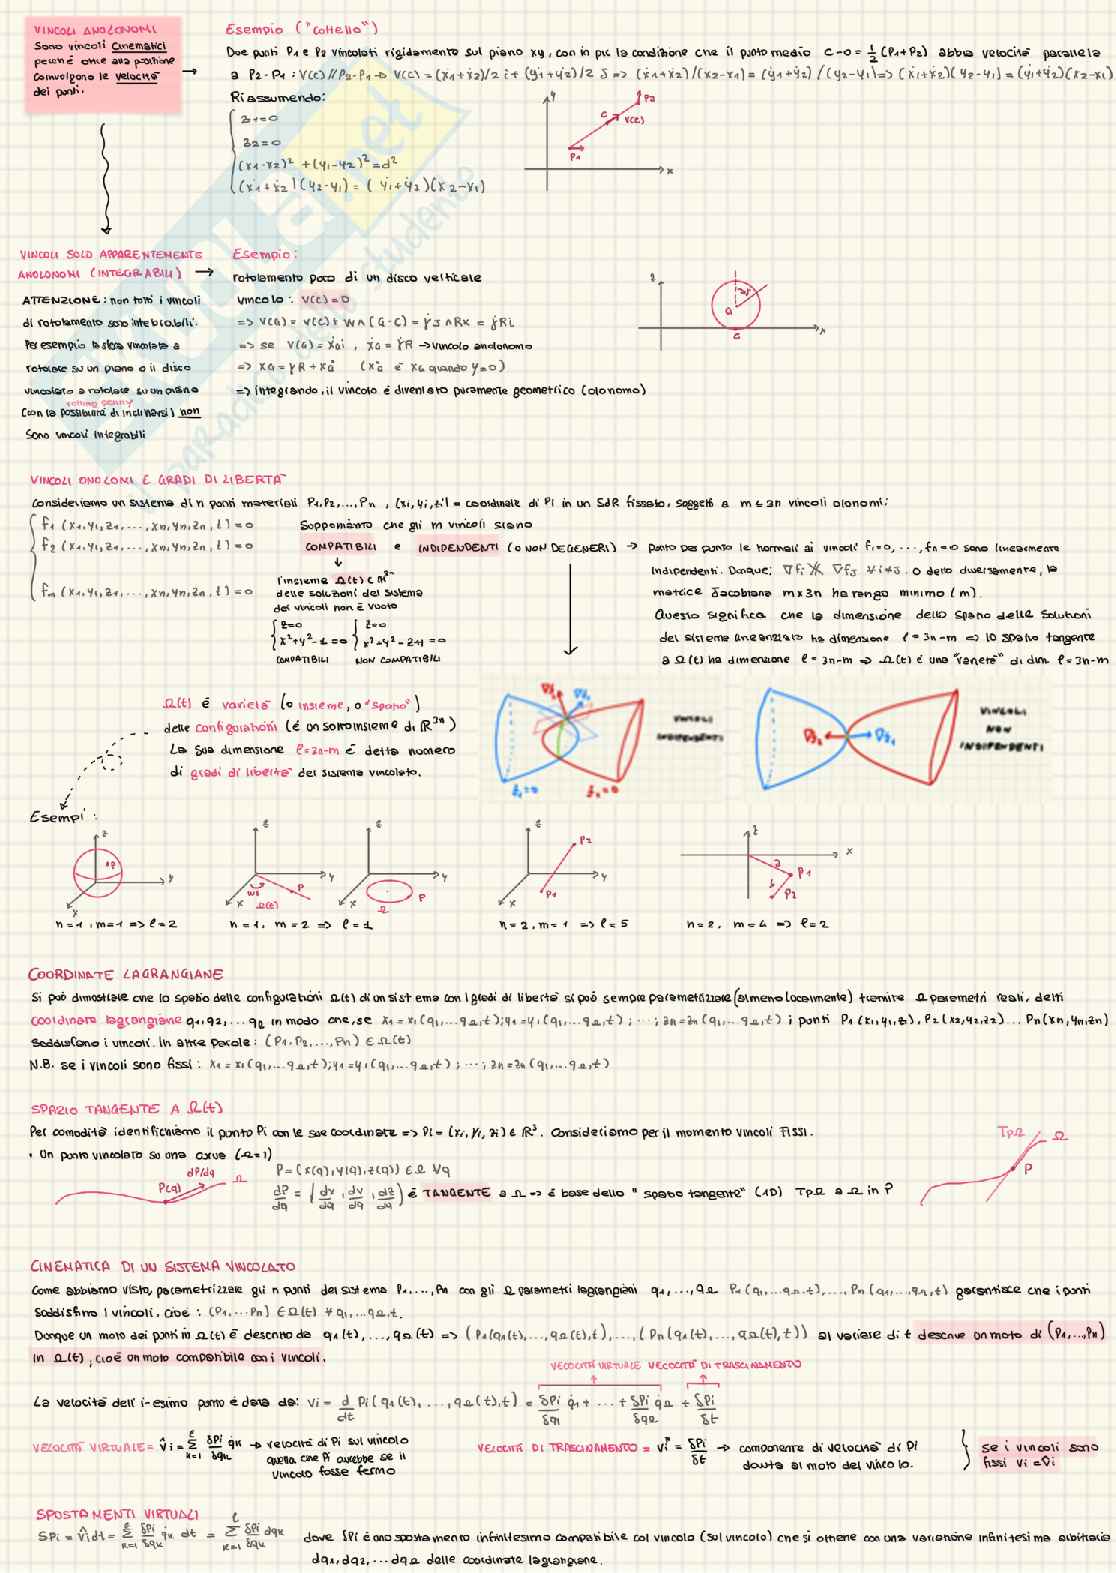 VINCOLI ANOLONOMI
Sono vincoli cinematici
perché oltre alla posizione
coinvolgono le velocità
dei punti.
Esempio ("coltello")
Due punti P1 e P2 vincolati rigidamente sul piano xy, con in più la condizione che il punto medio C-O = 1/2 (P1+P2) abbia velocità parallela
a P2-P1 : V(C) // P2-P1 => V(C) = (ẋ1+ẋ2)/2 i + (ẏ1+ẏ2)/2 j => (ẋ1+ẋ2)/(x2-x1) = (ẏ1+ẏ2)/(y2-y1) => (ẋ1+ẋ2)(y2-y1) = (ẏ1+ẏ2)(x2-x1)
Riassumendo:
z1=0
z2=0
(x1-x2)² + (y1-y2)² = d²
(ẋ1+ẋ2)(y2-y1) = (ẏ1+ẏ2)(x2-x1)
y P2 C V(C) P1 x
VINCOLI SOLO APPARENTEMENTE
ANOLONOMI (INTEGRABILI) →
ATTENZIONE: non tutti i vincoli
di rotolamento sono integrabili.
Per esempio la sfera vincolata a
rotolare su un piano o il disco
vincolato a rotolare su un piano
rolling penny
(con la possibilità di inclinarsi) non
sono vincoli integrabili
Esempio:
rotolamento puro di un disco verticale
vincolo: V(C)=0
=> V(G) = V(C) + W∧(G-C) = γ̇J∧RK = γ̇Ri
=> se V(G) = ẋGi , ẋG = γ̇R → vincolo anolonomo
=> xG = γR + x°G (x°G è xG quando γ=0)
=> integrando, il vincolo è diventato puramente geometrico (olonomo)
z γ G C x
VINCOLI OLONOMI E GRADI DI LIBERTA'
Consideriamo un sistema di n punti materiali P1,P2,...,Pn , (xi,yi,zi) = coordinate di Pi in un SdR fissato, soggetti a m ≤ 3n vincoli olonomi:
f1 (x1,y1,z1,...,xn,yn,zn,t) = 0
f2 (x1,y1,z1,...,xn,yn,zn,t) = 0
fm (x1,y1,z1,...,xn,yn,zn,t) = 0
Supponiamo che gli m vincoli siano
COMPATIBILI e INDIPENDENTI (o NON DEGENERI) →
l'insieme Ω(t) ⊂ R³ⁿ
delle soluzioni del sistema
dei vincoli non è vuoto
z=0
x²+y²-1=0
COMPATIBILI
z=0
x²+y²-z+1=0
NON COMPATIBILI
punto per punto le normali ai vincoli f1=0,...,fn=0 sono linearmente
indipendenti. Dunque, ∇fi ∦ ∇fj ∀i≠j. O detto diversamente, la
matrice Jacobiana m×3n ha rango minimo (m).
Questo significa che la dimensione dello spazio delle soluzioni
del sistema linearizzato ha dimensione ℓ=3n-m => lo spazio tangente
a Ω(t) ha dimensione ℓ=3n-m => Ω(t) è una "varietà" di dim. ℓ=3n-m
Ω(t) è varietà (o insieme, o "spazio")
delle configurazioni (è un sottoinsieme di R³ⁿ)
La sua dimensione ℓ=3n-m è detta numero
di gradi di libertà del sistema vincolato.
∇f2 ∇f1
VINCOLI
INDIPENDENTI
f1=0 f2=0
∇f2 ∇f1
VINCOLI
NON
INDIPENDENTI
Esempi:
z P y x
z y x wt P Ω(t)
z y x P Ω
z P2 y x P1
z x P1 P2
n=1, m=1 => ℓ=2
n=1, m=2 => ℓ=1
n=2, m=1 => ℓ=5
n=2, m=4 => ℓ=2
COORDINATE LAGRANGIANE
Si può dimostrare che lo spazio delle configurazioni Ω(t) di un sistema con l gradi di libertà si può sempre parametrizzare (almeno localmente) tramite ℓ parametri reali, detti
coordinate lagrangiane q1,q2,...qℓ in modo che, se x1=x1(q1,...qℓ,t); y1=y1(q1,...qℓ,t); ...; zn=zn(q1,...qℓ,t) i punti P1(x1,y1,z1), P2(x2,y2,z2)...Pn(xn,yn,zn)
soddisfano i vincoli. In altre parole: (P1,P2,...,Pn) ∈ Ω(t)
N.B. se i vincoli sono fissi: x1=x1(q1,...qℓ,t); y1=y1(q1,...qℓ,t); ...; zn=zn(q1,...qℓ,t)
SPAZIO TANGENTE A Ω(t)
Per comodità identifichiamo il punto Pi con le sue coordinate => Pi = (xi, yi, zi) ∈ R³. Consideriamo per il momento vincoli FISSI.
• Un punto vincolato su una curva (ℓ=1)
dP/dq Ω P(q)
P=(x(q),y(q),z(q)) ∈ Ω ∀q
dP/dq = (dx/dq, dy/dq, dz/dq) è TANGENTE a Ω => è base dello "spazio tangente" (1D) TpΩ a Ω in P
TpΩ Ω P
CINEMATICA DI UN SISTEMA VINCOLATO
Come abbiamo visto, parametrizzare gli n punti del sistema P1,...,Pn con gli ℓ parametri lagrangiani q1,...,qℓ P1(q1,...qℓ,t),...,Pn(q1,...,qℓ,t) garantisce che i punti
soddisfino i vincoli, cioè: (P1,...Pn) ∈ Ω(t) ∀ q1,...qℓ,t.
Dunque un moto dei punti in Ω(t) è descritto da q1(t),...,qℓ(t) => (P1(q1(t),...,qℓ(t),t),...,(Pn(q1(t),...,qℓ(t),t)) al variare di t descrive un moto di (P1,...,Pn)
in Ω(t), cioè un moto compatibile con i vincoli.
VELOCITÀ VIRTUALE VELOCITÀ DI TRASCINAMENTO
La velocità dell'i-esimo punto è data da: Vi = d/dt Pi(q1(t),...,qℓ(t),t) = δPi/δq1 q̇1 + ... + δPi/δqℓ q̇ℓ + δPi/δt
VELOCITÀ VIRTUALE = v̂i = Σ(k=1, ℓ) δPi/δqk q̇k → velocità di Pi sul vincolo
quella che Pi avrebbe se il
vincolo fosse fermo
VELOCITÀ DI TRASCINAMENTO = vi* = δPi/δt → componente di velocità di Pi
dovuta al moto del vincolo.
se i vincoli sono
fissi Vi = v̂i
SPOSTAMENTI VIRTUALI
δPi = v̂i dt = Σ(k=1, ℓ) δPi/δqk q̇k dt = Σ(k=1, ℓ) δPi/δqk dqk
dove δPi è uno spostamento infinitesimo compatibile col vincolo (sul vincolo) che si ottiene con una variazione infinitesima arbitraria
dq1, dq2,...dqℓ delle coordinate lagrangiane.